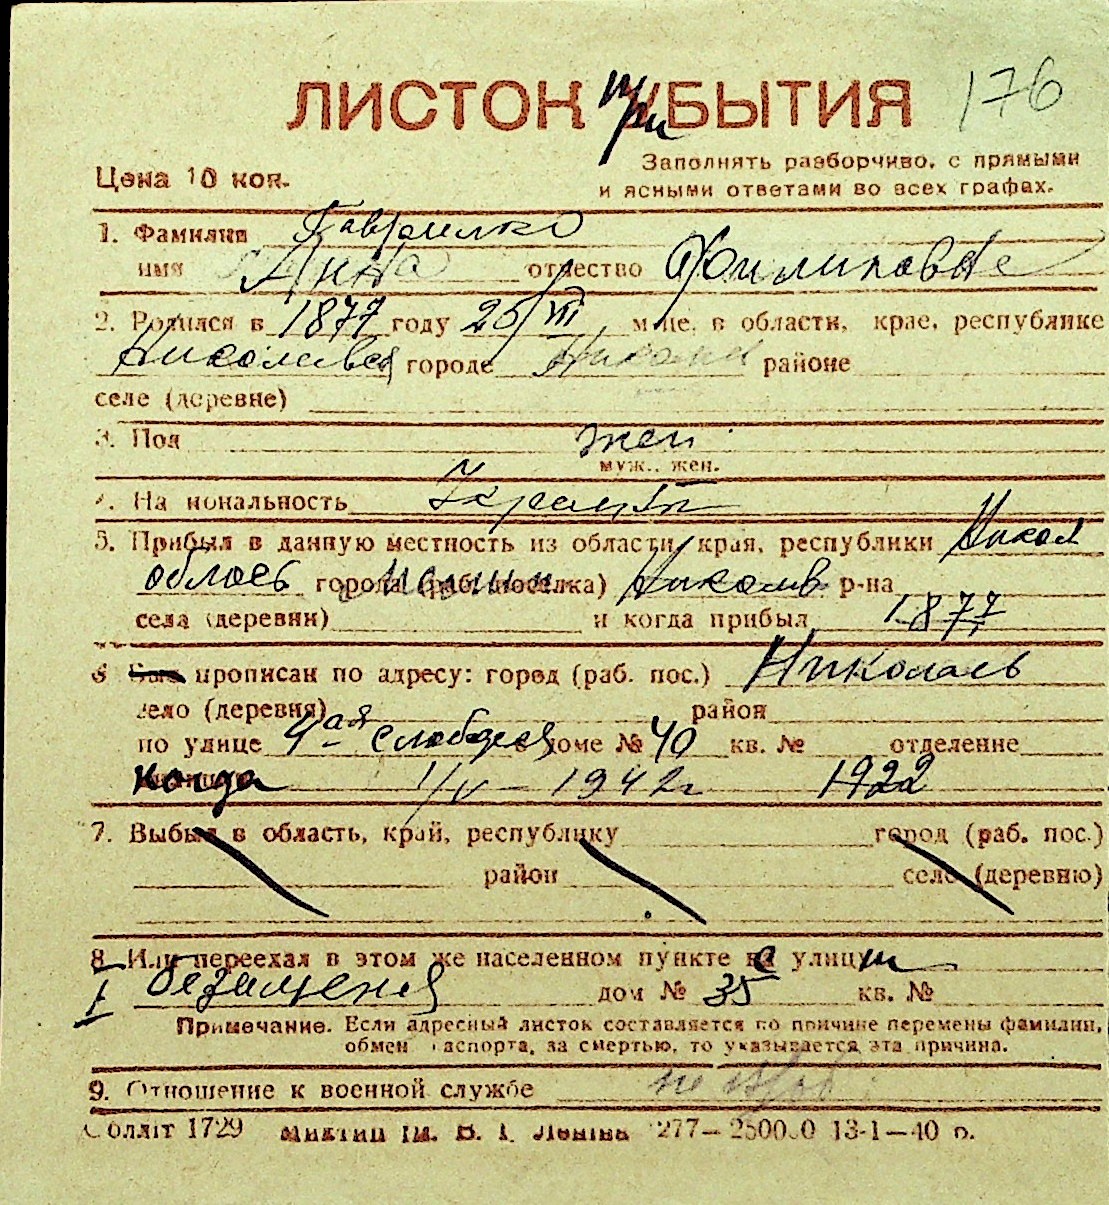 ЛИСТОК УБЫТИЯ при 176
Цена 10 коп.
Заполнять разборчиво, с прямыми
и ясными ответами во всех графах.
1. Фамилия Гаврилко
имя Анна отчество Филиповна
2. Родился в 1877 году 25/VIII м-це, в области, крае, республике
городе районе
селе (деревне)
3. Пол жен
муж., жен.
4. Национальность
5. Прибыл в данную местность из области, края, республики Никол
област города (раб. поселка) р-на
села (деревни) и когда прибыл 1877
6 прописан по адресу: город (раб. пос.) Николаев
село (деревня) район
по улице 4ая Слободская доме № 40 кв. № отделение
когда 1/IV - 1942 г 1922
7. Выбыл в область, край, республику город (раб. пос.)
район село (деревню)
8. Или переехал в этом же населенном пункте с улицы
I дом № 35 кв. №
Примечание. Если адресный листок составляется по причине перемены фамилии,
обмен паспорта, за смертью, то указывается эта причина.
9. Отношение к военной службе
Облліт 1729 ім. В. І. Леніна 277—250000 13-1—40 р.